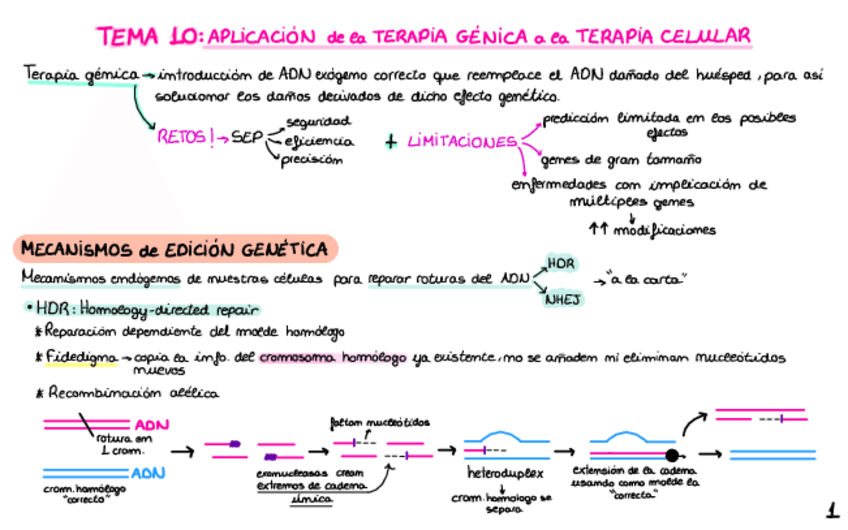 TEMA 10: APLICACIÓN de la TERAPIA GÉNICA a la TERAPIA CELULAR
Terapia génica → introducción de ADN exógeno correcto que reemplace el ADN dañado del huésped, para así
solucionar los daños derivados de dicho efecto genético.
RETOS! → SEP
seguridad
eficiencia
precisión
+ LIMITACIONES
predicción limitada en los posibles
efectos
genes de gran tamaño
enfermedades con implicación de
múltiples genes
↓
↑↑ modificaciones
MECANISMOS de EDICIÓN GENÉTICA
Mecanismos endógenos de nuestras células para reparar roturas del ADN
HDR
NHEJ
→ "a la carta"
• HDR: Homology-directed repair
* Reparación dependiente del molde homólogo
* Fidedigna → copia la info. del cromosoma homólogo ya existente, no se añaden ni eliminan nucleótidos
nuevos
* Recombinación alélica
ADN
rotura en
1 crom.
ADN
crom. homólogo
"correcto"
exonucleasas crean
extremos de cadena
única
faltan nucleótidos
heteroduplex
↓
crom. homologo se
separa
extensión de la cadena
usando como molde la
"correcta"
1